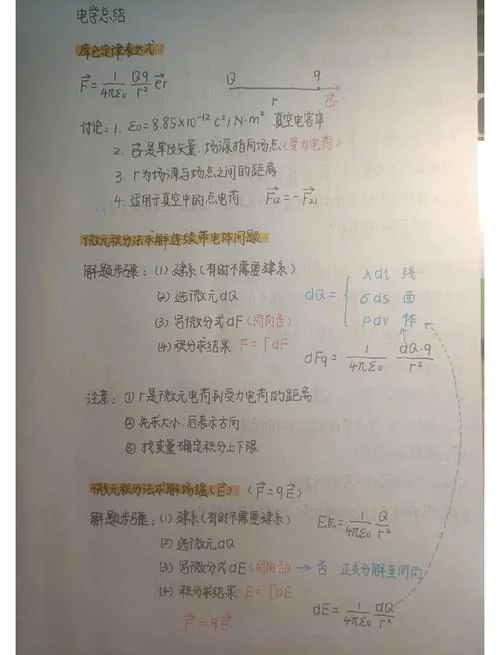 电学总结
库仑定律表达式
F⃗ = 1/4πε0 Qq/r² e⃗r
Q q
r e⃗r
讨论: 1. ε0=8.85×10⁻¹² C²/N·m² 真空电容率
2. e⃗r是单位矢量,场源指向场点(受力电荷)
3. r为场源与场点之间的距离
4. 适用于真空中的点电荷 F⃗12=-F⃗21
微元积分法求解连续带电体问题
解题步骤: (1) 建系(有时不需要建系)
(2) 选微元dQ dQ= { λdl 线
σds 面
ρdv 体
(3) 写微分式dF(同向否)
(4) 积分求结果 F=∫dF dFq= 1/4πε0 dQ·q/r²
注意: ① r是微元电荷到受力电荷的距离
② 先求大小,后表示方向
③ 找变量确定积分上下限
微元积分法求解场强(E⃗) (F⃗=qE⃗)
解题步骤: (1) 建系(有时不需要建系) E点= 1/4πε0 Q/r²
(2) 选微元dQ
(3) 写微分式dE(同向否) → 否 正交分解至同向
(4) 积分求结果 E=∫dE dE= 1/4πε0 dQ/r²
F⃗=qE⃗